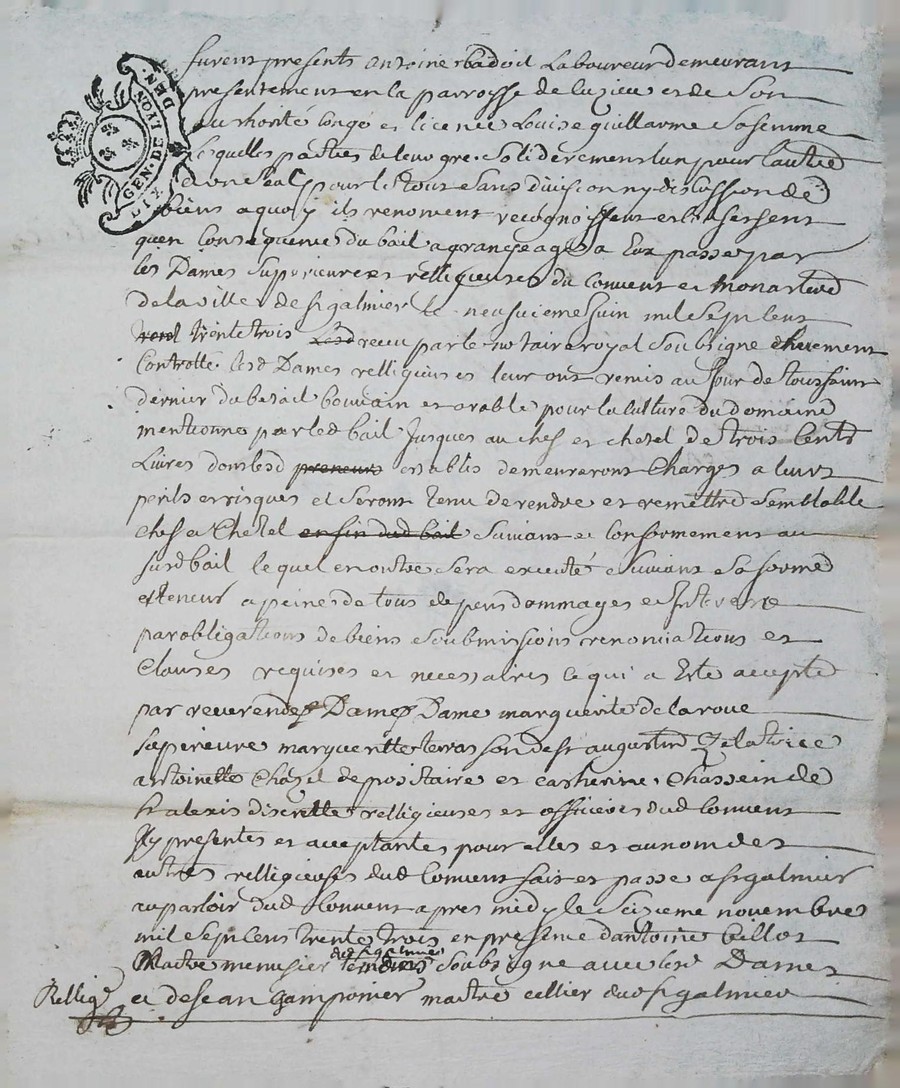 GEN. DE LYON
DIX DEN.
furent presents antoine badoil Laboureur demeurant
presentement en la parroisse de luzieu et de Son
authorité Congé et licence Louise guillaume sa femme
Lesquelles parties de leur gre solidèrement lun pour lautre
un seul pour le tout sans division ny discussion de
biens a quoy ils renoncent recognoissent et confessent
quen Consequence du bail a grangeage a Eux passe par
les Dames Superieure et relligieuses du Couvent et monastere
de la ville de st galmier le neufvieme Juin mil sept cent
trente trois receu par le notaire royal soubsigne
Controllé lesd Dames relligieuses leur ont remis au Jour de toussaint
dernier du betail bouvain et arable pour la Culture du domaine
mentionne par led bail Jusques au chef et chetel de trois Cents
Livres dont lesd preneurs establis demeureront Charges a leurs
perils et risques et seront tenu de rendre et remettre semblable
chef et Chetel en fin dud bail suivant et Conformement au
susd bail lequel en outre sera executé suivant sa forme
et teneur a peine de tous depens dommages et Interests
par obligations de biens soubmissions renonciations et
Clauses requises et necessaires Ce qui a Esté accepté
par reverendes Dames Dame marguerite de la roue
superieure marguerite terras son de st augustin Zelatrice
antoinette Chazel depositaire et catherine Chassein de
st alexis discrette relligieuses et officieres dud Couvent
Icy presentes et acceptantes pour elles et au nom des
autres relligieuses dud Couvent fait et passe a st galmier
au parloir dud Couvent apres midy le seizieme novembre
mil sept cens trente trois en presence dantoine billot
dud st galmier
Maitre menusier soubsigne avec lesd Dames
Rellig. et de Jean Camponier maitre cellier dud st galmier